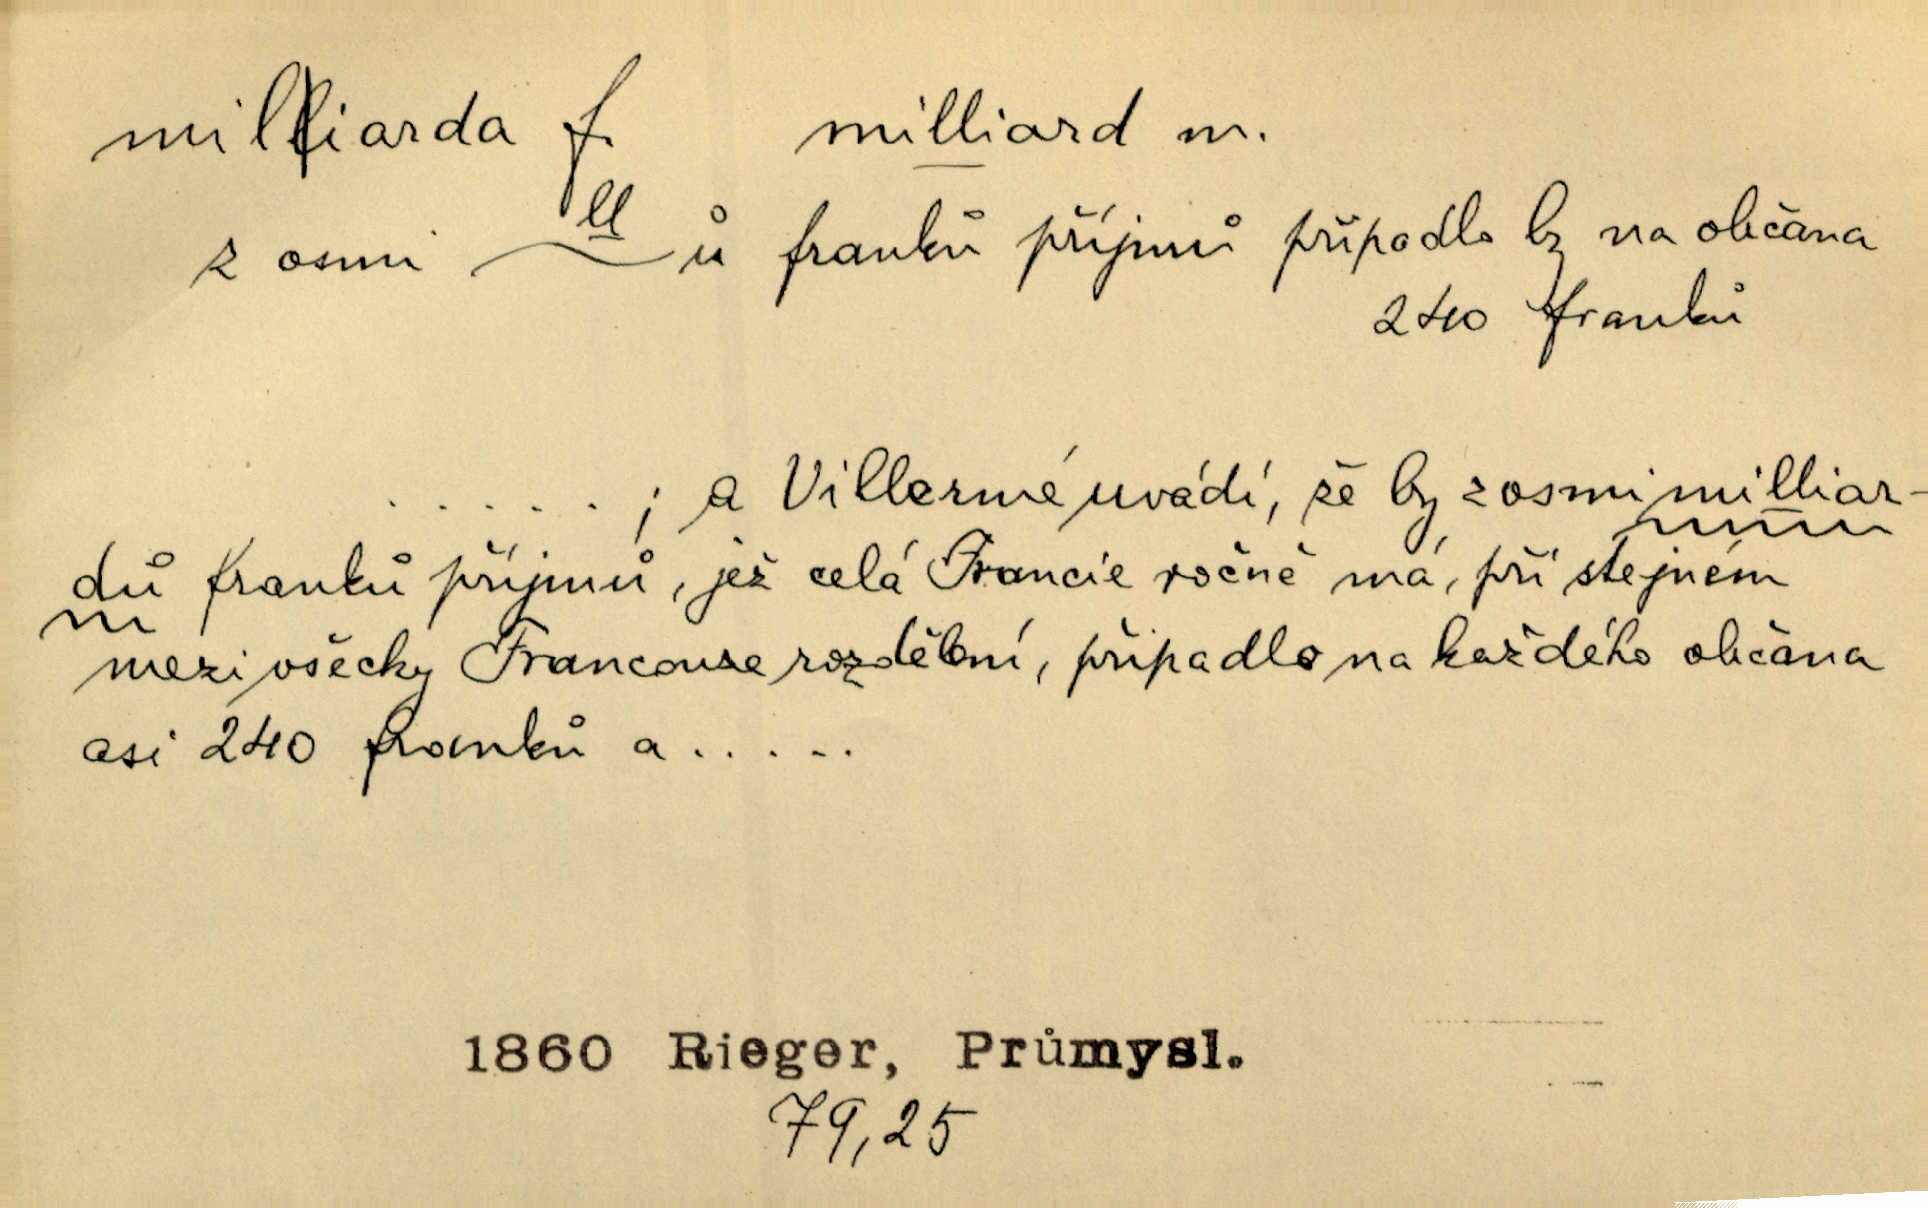 milliarda f. milliard m.
ll
z osmi ~ů franků příjmů připadlo by na občana
240 franků
. . . . . ; a Villermé uvádí, že by z osmi milliar-
dů franků příjmů, jež celá Francie ročně má, při stejném
mezi všecky Francouze rozdělení, připadlo na každého občana
asi 240 franků a . . . . .
1860 Rieger, Průmysl.
79,25